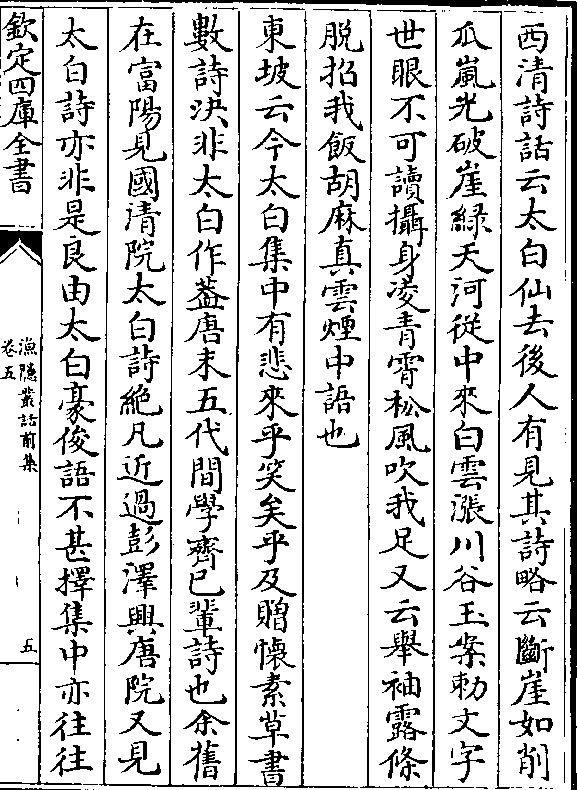 西清詩話云太白仙去後人有見其詩略云斷崖如削
瓜嵐光破崖綠天河從中來白雲漲川谷玉案勅文字
世眼不可讀攝身凌青霄松風吹我足又云舉袖露條
脫招我飯胡麻真雲煙中語也
東坡云今太白集中有悲來乎笑矣乎及贈懷素草書
數詩決非太白作葢唐末五代間學齊已輩詩也余舊
在富陽見國清院太白詩絶凡近過彭澤興唐院又見
太白詩亦非是良由太白豪俊語不甚擇集中亦往往
欽定四庫全書
漁隱叢話前集
卷五
五